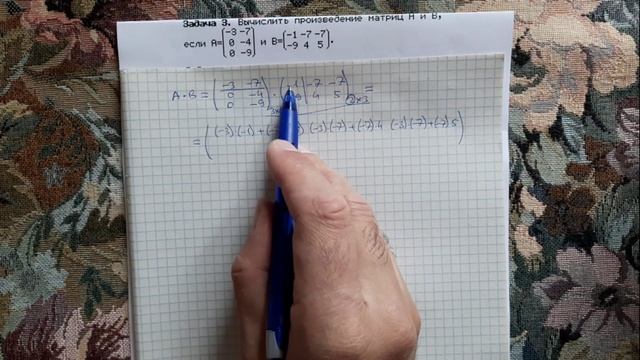 Задача 3. Вычислить произведение матриц А и В,
если А=(-3 -7
0 -4
0 -9) и В=(-1 -7 -7
-9 4 5).
A·B = (-3 -7
0 -4
0 -9) · ( -7 -7
4 5) =
2×3
= ((-3)·(-1)+ (-3)·(-7)+(-7)·4 (-3)·(-7)+(-7)·5)